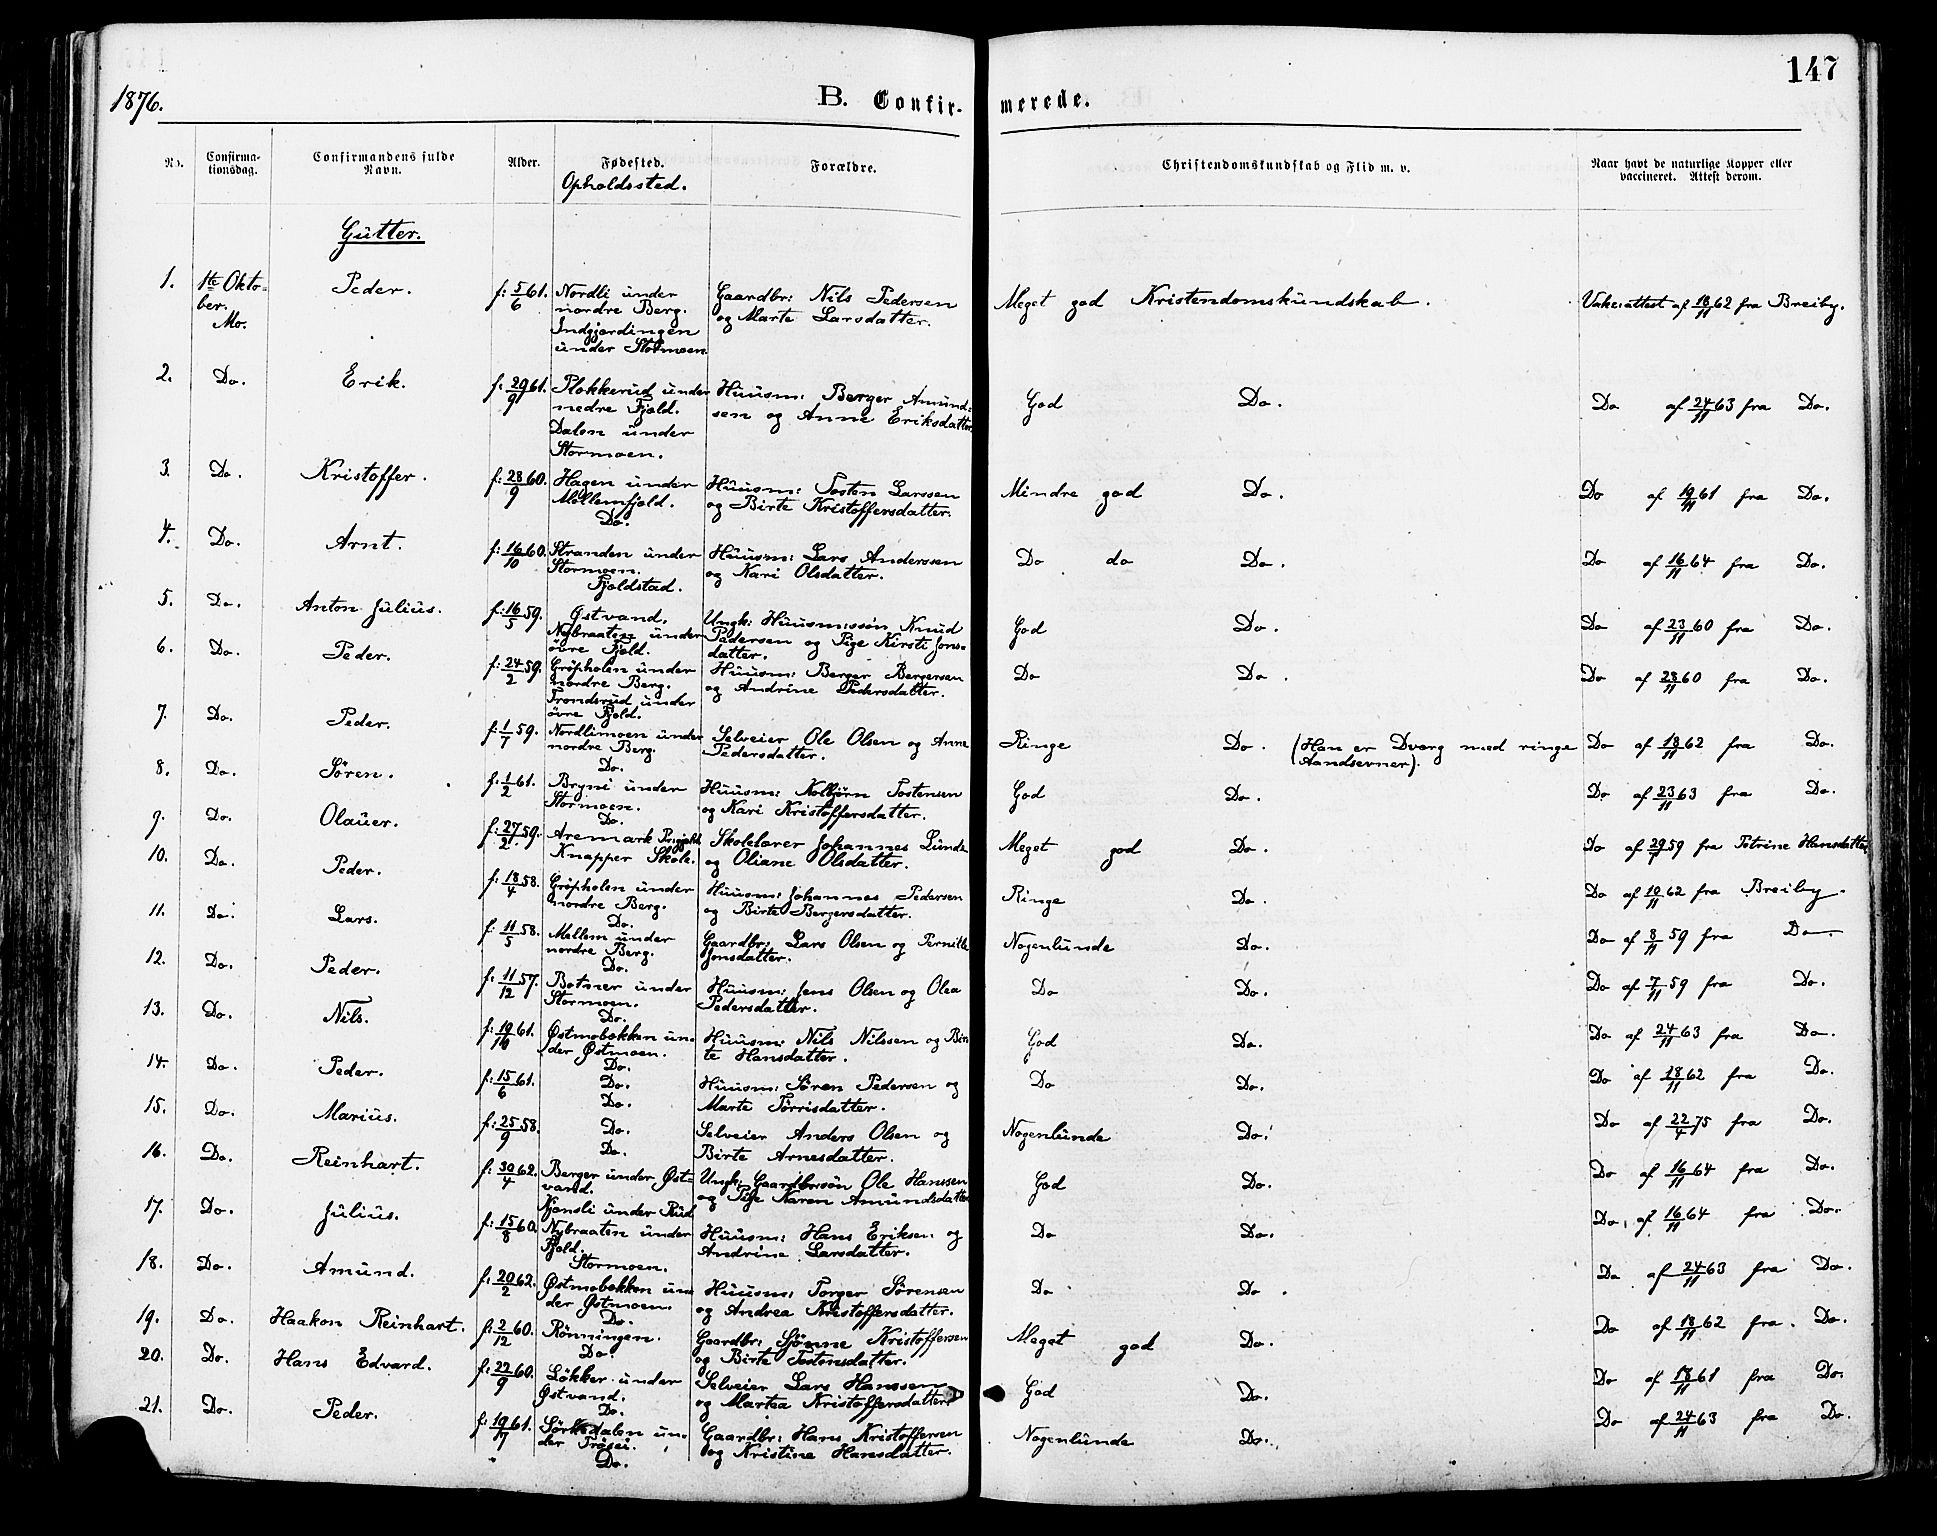 147
1876.
B. Confir- merede.
No. Confirma-tionsdag. Confirmandens fulde Navn. Alder. Fødested. Opholdssted. Forældre. Christendomskundskab og Flid m. v. Naar havt de naturlige Kopper eller vaccineret. Attest derom.
Gutter.
1. 1ste Okto- Peder. f: 5/6 61. Nordli under Gaardbr: Nils Pedersen Meget god Kristendomskundskab. Vakc:attest af 18/11 62 fra Breiby.
ber. nordre Berg. og Marte Larsdatter.
Mo. Indgjordingen
under Stormoen.
2. Do. Erik. f: 29/9 61. Plokkerud under Huusm: Berger Amund- God Do. Do af 24/11 63 fra Do.
nedre Fjold. sen og Anne Eriksdatter.
Dalen under
Stormoen.
3. Do. Kristoffer. f: 28/9 60. Hagen under Huusm: Tosten Larssen Mindre god Do. Do af 19/11 61 fra Do.
Mellemfjold. og Birte Kristoffersdatter.
Do.
4. Do. Arnt. f: 16/10 60. Stranden under Huusm: Lars Anderssen Do do Do. Do af 16/11 64 fra Do.
Stormoen. og Kari Olsdatter.
Fjoldstad.
5. Do. Anton Julius. f: 16/5 59. Østvand. Ungk: Huusm:søn Knud God Do. Do af 23/11 60 fra Do.
Nybraaten under Pedersen og Pige Kirsti Jons-
øvre Fjold. datter.
6. Do. Peder. f: 24/2 59. Grøpholen under Huusm: Berger Bergersen Do Do. Do af 23/11 60 fra Do.
nordre Berg. og Andrine Pedersdatter.
Tromdsrud under
øvre Fjold.
7. Do. Peder. f: 1/7 59. Nordlimoen under Selveier Ole Olsen og Anne Ringe Do. (Han er Dverg med ringe Do af 18/11 62 fra Do.
nordre Berg. Pedersdatter. Aandsevner).
Do.
8. Do. Søren. f: 1/2 61. Bryni under Huusm: Kolbjørn Tostensen God Do. Do af 23/11 63 fra Do.
Stormoen. og Kari Kristoffersdatter.
Do.
9. Do. Olauer. f: 27/2 59. Aremark Skolelærer Johannes Lunde Meget god Do. Do af 59 fra Petrine Hansdatter
Knapper Skole. og Oliane Olsdatter.
10. Do. Peder. f: 18/4 58. Grøpholen under Huusm: Johannes Pedersen Ringe Do. Do af 10/11 62 fra Breiby.
nordre Berg. og Birte Bergersdatter.
Do.
11. Do. Lars. f: 11/5 58. Mellem under Gaardbr: Lars Olsen og Pernille Nogenlunde Do. Do af 8/11 59 fra Do.
nordre Berg. Jonsdatter.
Do.
12. Do. Peder. f: 11/12 57. Botner under Huusm: Jens Olsen og Olea Do Do. Do af 7/11 59 fra Do.
Stormoen. Pedersdatter.
Do.
13. Do. Nils. f: 19/10 61. Østmobekken un- Huusm: Nils Nilssen og Bir- God Do. Do af 24/11 63 fra Do.
der Østmoen. te Hansdatter.
Do.
14. Do. Peder. f: 15/6 61. Do. Huusm: Søren Pedersen og Do Do. Do af 18/11 62 fra Do.
Do. Marte Tørrisdatter.
15. Do. Marius. f: 25/9 58. Do. Selveier Anders Olsen og Nogenlunde Do. Do af 22/4 75 fra Do.
Do. Birte Arnesdatter.
16. Do. Reinhart. f: 30/4 62. Berger under Øst- Ungk: Gaardbr:søn Ole Hanssen God Do. Do af 16/11 64 fra Do.
vand. og Pige Karen Amundsdatter
Kjonsli under Rud
17. Do. Julius. f: 15/8 60. Nybraaten under Huusm: Hans Eriksen og Do Do. Do. af 16/11 64 fra Do.
Fjold. Andrine Larsdatter.
Stormoen.
18. Do. Amund. f: 20/2 62. Østmobekken un- Huusm: Torger Sørensen Do Do. Do af 24/11 63 fra Do.
der Østmoen. og Andrea Kristoffersdatter.
Do.
19. Do. Haakon Reinhart. f: 2/12 60. Rønningen. Gaardbr: Sjønne Kristoffersen Meget god Do. Do af 18/11 62 fra. Do.
Do. og Birte Tostensdatter.
20. Do. Hans Edvard. f: 22/9 60. Løkker under Selveier Lars Hanssen God Do. Do af 18/11 61 fra Do.
Østvand. og Martea Kristoffersdatter.
Do.
21. Do. Peder. f: 19/7 61. Sørkedalen un- Gaardbr: Hans Kristoffersen Nogenlunde Do. Do af 24/11 63 fra Do.
der Trøsei. og Kristine Hansdatter.
Do.